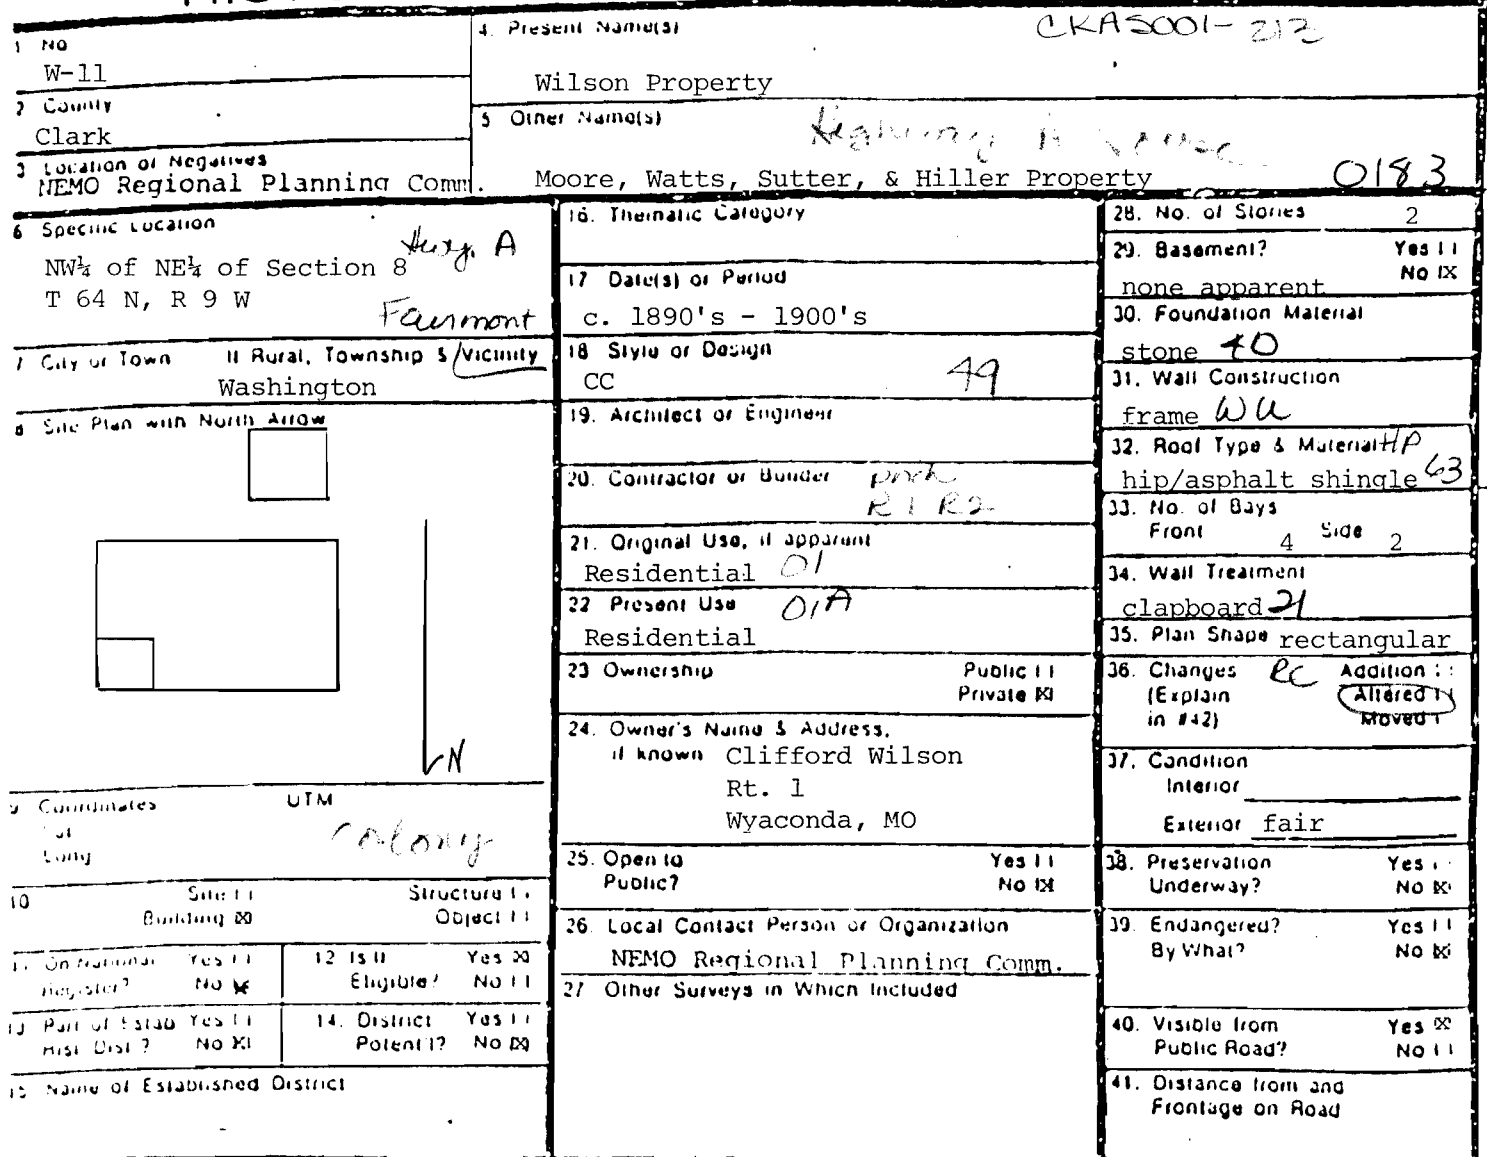 1 No
W-11
2 County
Clark
3 Location of Negatives
NEMO Regional Planning Comm.
4. Present Name(s)
CKAS001-212
Wilson Property
5 Other Name(s)
Highway A House
Moore, Watts, Sutter, & Hiller Property
0183
6 Specific Location
Hwy. A
NW¼ of NE¼ of Section 8
T 64 N, R 9 W
Fairmont
7 City or Town If Rural, Township & Vicinity
Washington
8 Site Plan with North Arrow
N
9 Coordinates UTM
Lat
Long
Colony
10 Site [ ] Structure [ ]
Building [X] Object [ ]
11. On National Yes [ ]
Register? No [X]
12 Is It Yes [X]
Eligible? No [ ]
13 Part of Estab Yes [ ]
Hist. Dist.? No [X]
14. District Yes [ ]
Potent'l? No [X]
15 Name of Established District
16. Thematic Category
17 Date(s) or Period
c. 1890's - 1900's
18 Style or Design
CC 49
19. Architect or Engineer
20. Contractor or Builder
porch
R1 R2
21. Original Use, if apparent
Residential 01
22 Present Use 01A
Residential
23 Ownership Public [ ]
Private [X]
24. Owner's Name & Address,
if known Clifford Wilson
Rt. 1
Wyaconda, MO
25. Open to Yes [ ]
Public? No [X]
26. Local Contact Person or Organization
NEMO Regional Planning Comm.
27 Other Surveys in Which Included
28. No. of Stories 2
29. Basement? Yes [ ]
No [X]
none apparent
30. Foundation Material
stone 40
31. Wall Construction
frame WU
32. Roof Type & Material HP
hip/asphalt shingle 63
33. No. of Bays
Front 4 Side 2
34. Wall Treatment
clapboard 21
35. Plan Shape rectangular
36. Changes RC Addition [ ]
(Explain Altered [ ]
in #42) Moved [ ]
37. Condition
Interior
Exterior fair
38. Preservation Yes [ ]
Underway? No [X]
39. Endangered? Yes [ ]
By What? No [X]
40. Visible from Yes [X]
Public Road? No [ ]
41. Distance from and
Frontage on Road